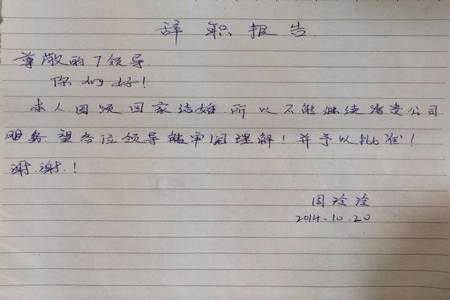 辞职报告
尊敬的厂领导
你们好！
本人因须回家结婚.所以不能继续为贵公司
服务.望各位领导能审阅理解！并予以批准！
谢谢.！
周玲玲
2014.10.20